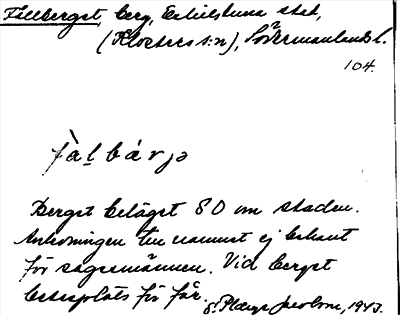 Fällberget, berg, Eskilstuna stad,
(Klosters sn), Södermanlands l.
104.
fàl bárjə
Berget beläget SO om staden.
Anledningen till namnet ej bekant
för sagesmännen. Vid berget
betesplats för får.
G. Jacobson, 1943.